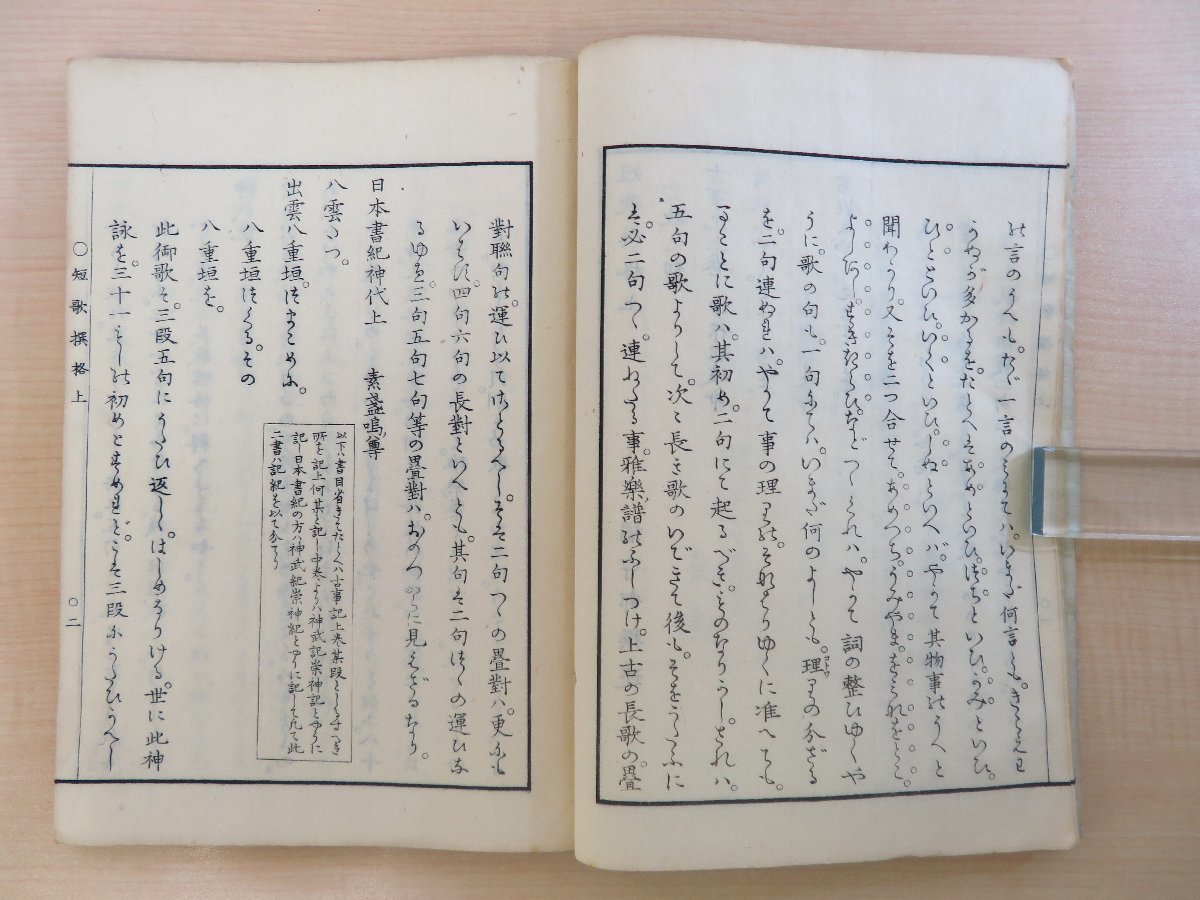 の言のうへも。たゞ一言のみにてハ。いまだ何言とも。きこえわ
うぬが多かるを。たとへバ。あめといひ。つちといひ。うみといひ。
ひとといひ。いくといひ。しぬといへバ。やがて其物事のうへと
聞わかり又そを二つ合せて。あめつち。うみやま。
よしあし。など つくれハ。やがて詞の整ひゆくや
うに。歌の句も。一句にてハ。いまだ何のよしとも。理りの分ざる
を。二句連ぬれハ。やがて事の理りの。それとなりゆくに准へても。
ことに歌ハ。其初め。二句にて起るべき。ものなりかし。されハ。
五句の歌よりして。次々長き歌のいできて後も。そをうたふに
は。必二句づゝ連ねたる事。雅樂譜のふしつけ。上古の長歌の。疊
對聯句の。運ひ以てさとるへし。そも二句づゝの疊對ハ。更にも
いはず。四句六句の長對といへとも。其句は二句づゝの運ひな
るゆゑ。三句五句七句等の疊對ハ。おのつからに見えざるなり。
日本書紀神代上 素盞嗚尊
以下ハ書目省きてたとへハ古事記上巻某段としるすへき
所を記上何某と記し中巻よりハ神武記崇神記とやうに
記し日本書紀の方ハ神武紀崇神紀とやうに記しすべて此
二書ハ記紀を以て分てり
八雲たつ。
出雲八重垣。つまこめに。
八重垣つくる。その
八重垣を。
此御歌は。三段五句にうたひ返し。はしめなりける。世に此神
詠を。三十一もしの初めとすめれど。こそ三段にうたひうへし
〇短歌撰格上
〇二